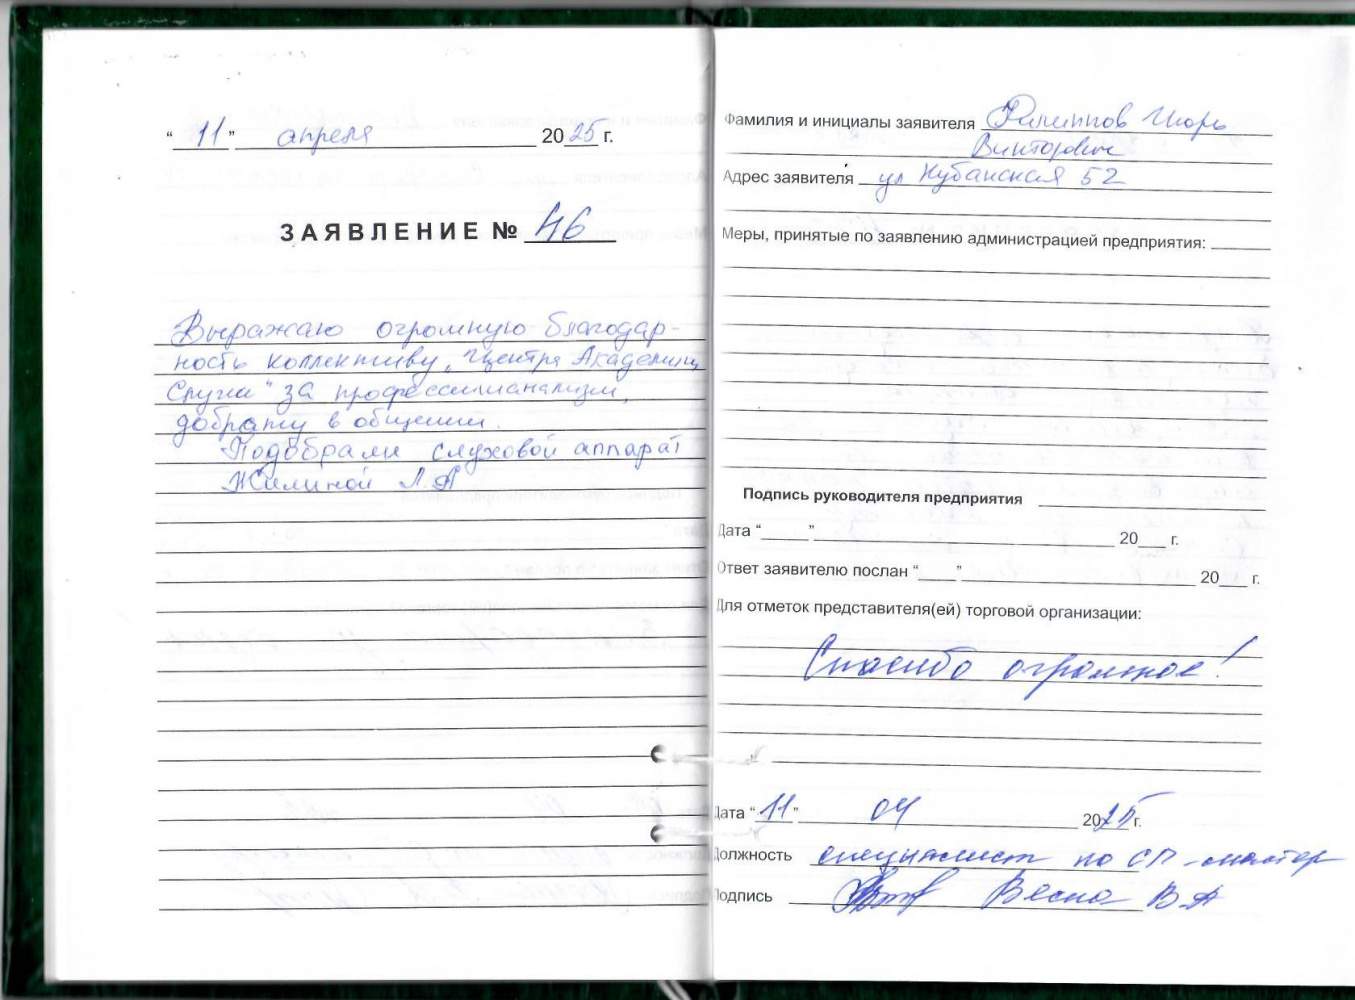 “ 11 ” апреля 2025 г.
ЗАЯВЛЕНИЕ № 46
Выражаю огромную благодар-
ность коллективу „Центра Академии
Слуха“ за профессионализм,
доброту в общении.
Подобрали слуховой аппарат
Жилиной Л.А
Фамилия и инициалы заявителя Филиппов Игорь
Викторович
Адрес заявителя ул Кубанская 52
Меры, принятые по заявлению администрацией предприятия:
Подпись руководителя предприятия
Дата “ ” 20 г.
Ответ заявителю послан “ ” 20 г.
Для отметок представителя(ей) торговой организации:
Спасибо огромное!
Дата “ 11 ” 04 2025 г.
Должность специалист по СП -мастер
Подпись Весна В А